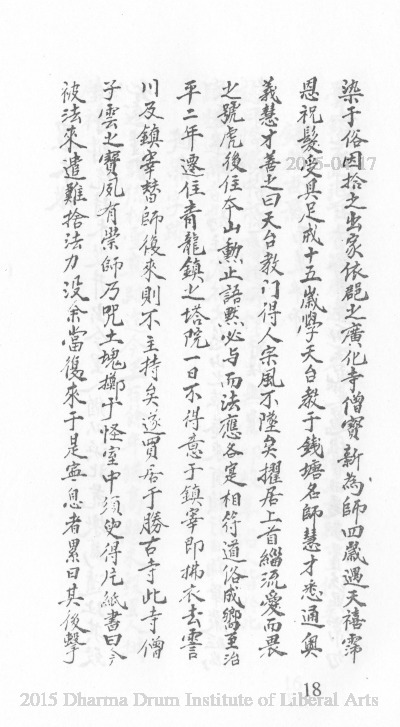 染于俗因捨之出家依邑之廣化寺僧寶新為師四歲遇天禧霈
恩祝髮受具足戒十五歲學天台教于錢塘名師慧才悉通奧
義慧才善之曰天台教門得人宗風不墜矣擢居上首緇流愛而畏
之號虎後住本山動止語默必与而法應各寔相符道俗咸嚮至治
平二年遷住青龍鎮之塔院一日不得意于鎮宰即拂衣去雲
川及鎮宰替師復來則不主持矣遂買居于勝古寺此寺僧
子雲之寶夙有祟師乃咒土塊擲于怪室中須臾得片紙書曰今
被法來遣難捨法力没余當復來于是寧息者累日其後擊
18
2015 Dharma Drum Institute of Liberal Arts